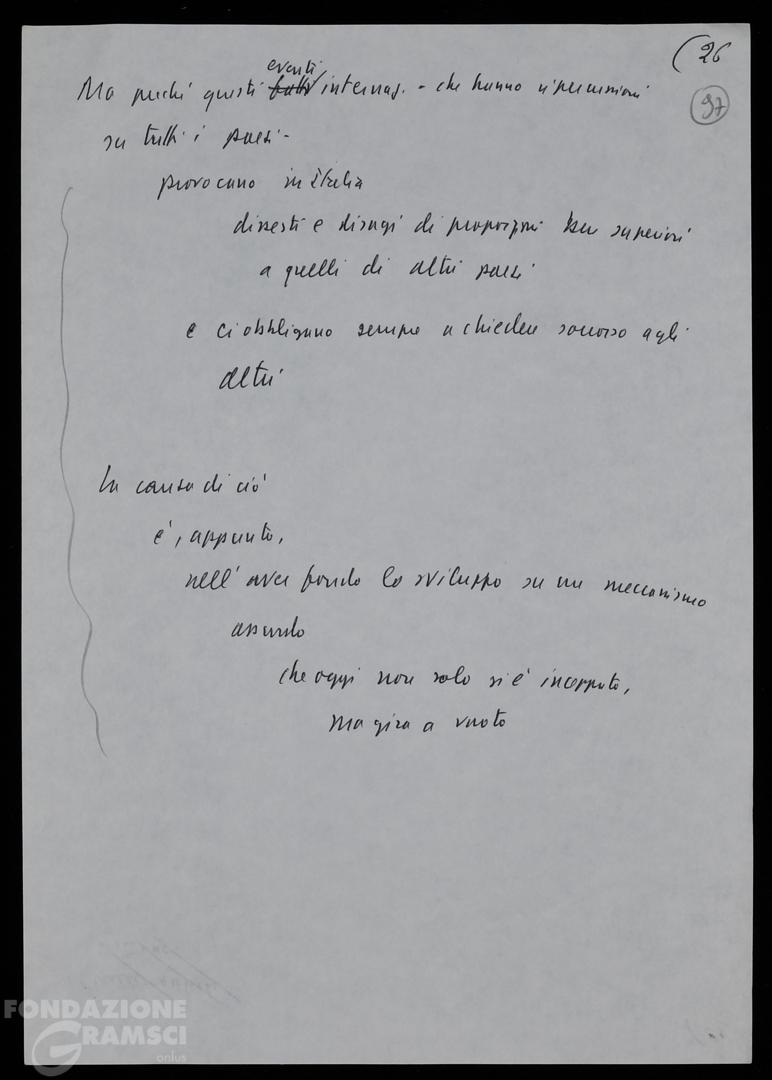 (26
97
eventi
Ma perché questi fatti internaz. - che hanno ripercussioni
su tutti i paesi -
provocano in Italia
dissesti e disagi di proporzioni ben superiori
a quelli di altri paesi
e ci obbligano sempre a chiedere soccorso agli
altri
La causa di ciò
è, appunto,
nell'aver fondato lo sviluppo su un meccanismo
assurdo
che oggi non solo si è inceppato,
ma gira a vuoto
FONDAZIONE
GRAMSCI
onlus